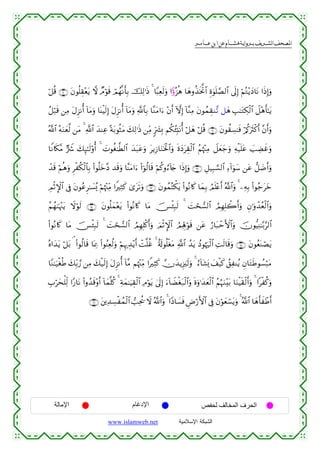 المصحف الشريف برواية هشام عن ابن عامر
وَإِذَا نَادَيْتُمْ إِلَى ٱلصَّلَوٰةِ ٱتَّخَذُوهَا هُزُؤًا وَلَعِبًا ۚ ذَٰلِكَ بِأَنَّهُمْ قَوْمٌ لَّا يَعْقِلُونَ ٥٨ قُلْ
يَٰٓأَهْلَ ٱلْكِتَٰبِ هَل تَّنقِمُونَ مِنَّآ إِلَّآ أَنْ ءَامَنَّا بِٱللَّهِ وَمَآ أُنزِلَ إِلَيْنَا وَمَآ أُنزِلَ مِن قَبْلُ
وَأَنَّ أَكْثَرَكُمْ فَٰسِقُونَ ٥٩ قُلْ هَلْ أُنَبِّئُكُم بِشَرٍّ مِّن ذَٰلِكَ مَثُوبَةً عِندَ ٱللَّهِ ۚ مَن لَّعَنَهُ ٱللَّهُ
وَغَضِبَ عَلَيْهِ وَجَعَلَ مِنْهُمُ ٱلْقِرَدَةَ وَٱلْخَنَازِيرَ وَعَبَدَ ٱلطَّٰغُوتَ ۚ أُو۟لَٰٓئِكَ شَرٌّ مَّكَانًا
وَأَضَلُّ عَن سَوَآءِ ٱلسَّبِيلِ ٦٠ وَإِذَا جَآءُوكُمْ قَالُوٓا۟ ءَامَنَّا وَقَد دَّخَلُوا۟ بِٱلْكُفْرِ وَهُمْ قَدْ
خَرَجُوا۟ بِهِۦ ۚ وَٱللَّهُ أَعْلَمُ بِمَا كَانُوا۟ يَكْتُمُونَ ٦١ وَتَرَىٰ كَثِيرًا مِّنْهُمْ يُسَٰرِعُونَ فِى ٱلْإِثْمِ
وَٱلْعُدْوَٰنِ وَأَكْلِهِمُ ٱلسُّحْتَ ۚ لَبِئْسَ مَا كَانُوا۟ يَعْمَلُونَ ٦٢ لَوْلَا يَنْهَىٰهُمُ
ٱلرَّبَّٰنِيُّونَ وَٱلْأَحْبَارُ عَن قَوْلِهِمُ ٱلْإِثْمَ وَأَكْلِهِمُ ٱلسُّحْتَ ۚ لَبِئْسَ مَا كَانُوا۟
يَصْنَعُونَ ٦٣ وَقَالَتِ ٱلْيَهُودُ يَدُ ٱللَّهِ مَغْلُولَةٌ ۚ غُلَّتْ أَيْدِيهِمْ وَلُعِنُوا۟ بِمَا قَالُوا۟ ۘ بَلْ يَدَاهُ
مَبْسُوطَتَانِ يُنفِقُ كَيْفَ يَشَآءُ ۚ وَلَيَزِيدَنَّ كَثِيرًا مِّنْهُم مَّآ أُنزِلَ إِلَيْكَ مِن رَّبِّكَ طُغْيَٰنًا
وَكُفْرًا ۚ وَأَلْقَيْنَا بَيْنَهُمُ ٱلْعَدَٰوَةَ وَٱلْبَغْضَآءَ إِلَىٰ يَوْمِ ٱلْقِيَٰمَةِ ۚ كُلَّمَآ أَوْقَدُوا۟ نَارًا لِّلْحَرْبِ
أَطْفَأَهَا ٱللَّهُ ۚ وَيَسْعَوْنَ فِى ٱلْأَرْضِ فَسَادًا ۚ وَٱللَّهُ لَا يُحِبُّ ٱلْمُفْسِدِينَ ٦٤
الحرف المخالف لحفص الإدغام الإمالة
الشبكة الإسلامية www.islamweb.net